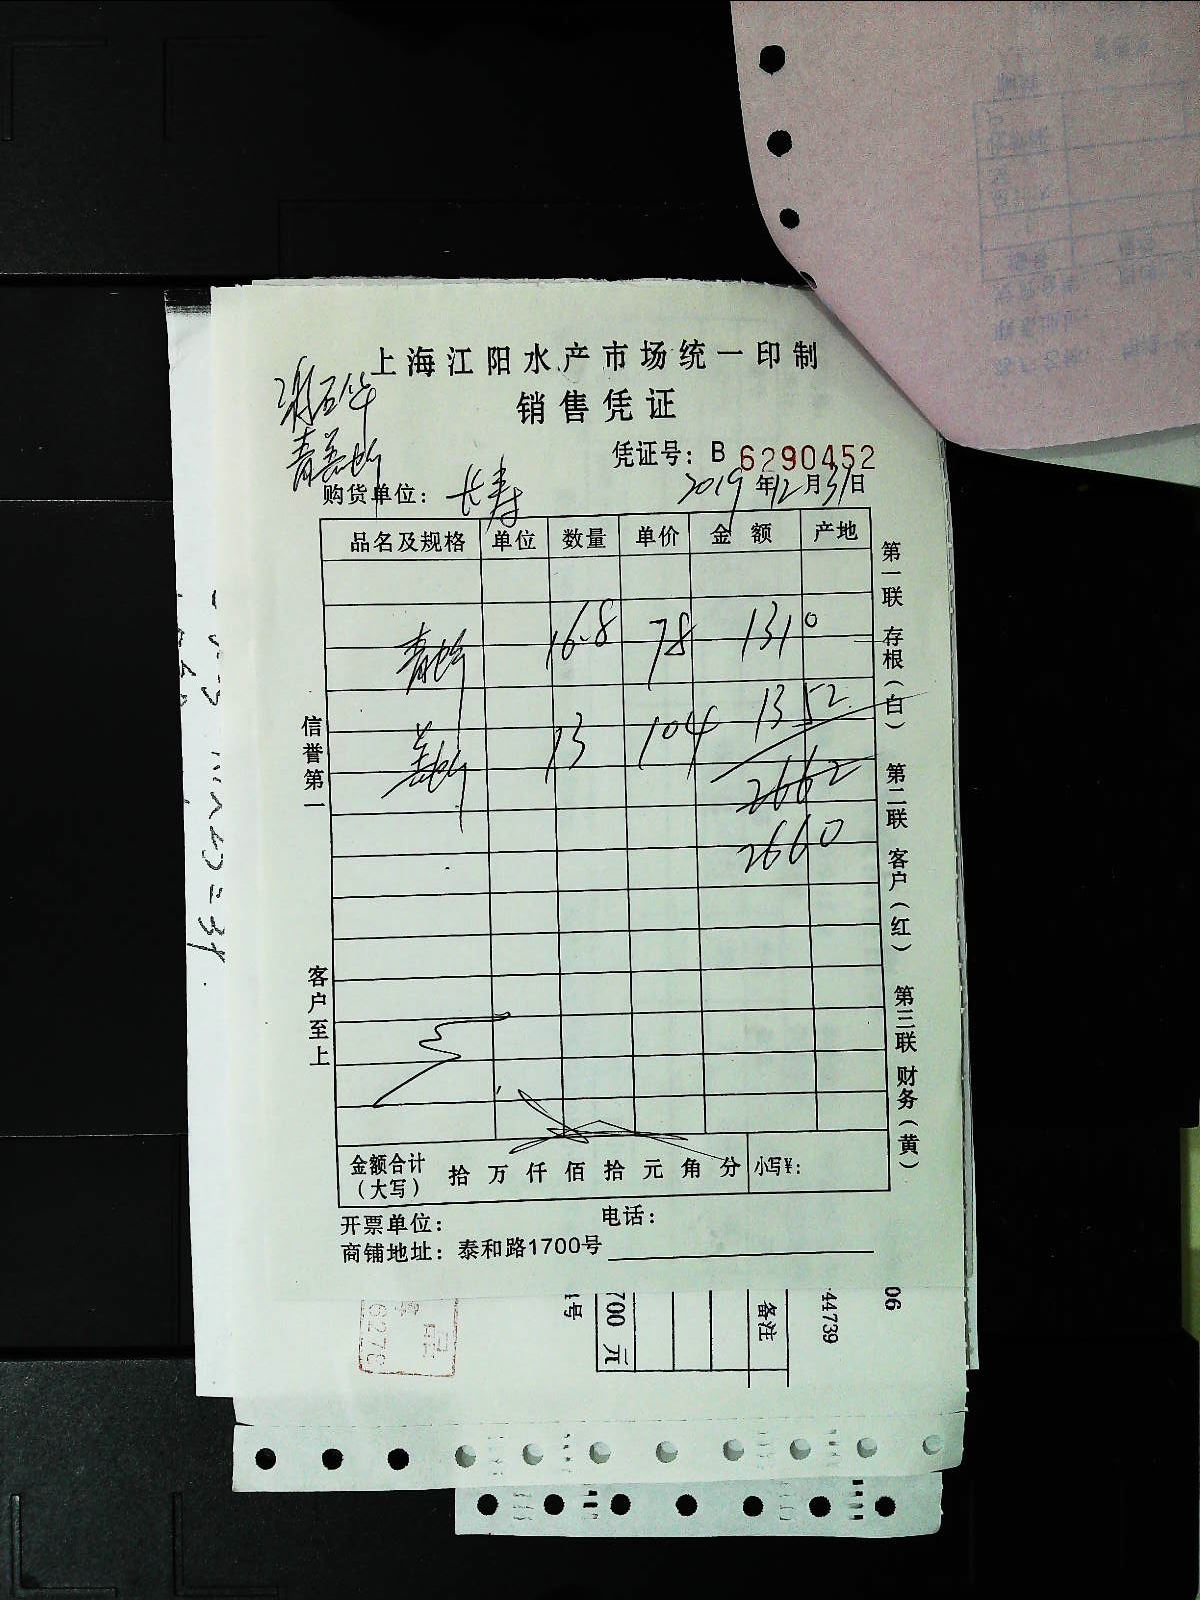 上海江阳水产市场统一印制
销售凭证
凭证号：B 6290452
购货单位：长寿 2019年12月31日
品名及规格 单位 数量 单价 金额 产地
青蚧 16.8 78 1310
盖蚧 13 104 1352
2662
2660
金额合计（大写） 拾 万 仟 佰 拾 元 角 分 小写¥：
开票单位： 电话：
商铺地址：泰和路1700号
信誉第一
客户至上
第一联 存根（白）
第二联 客户（红）
第三联 财务（黄）
700 元
备注
44739
06
6276